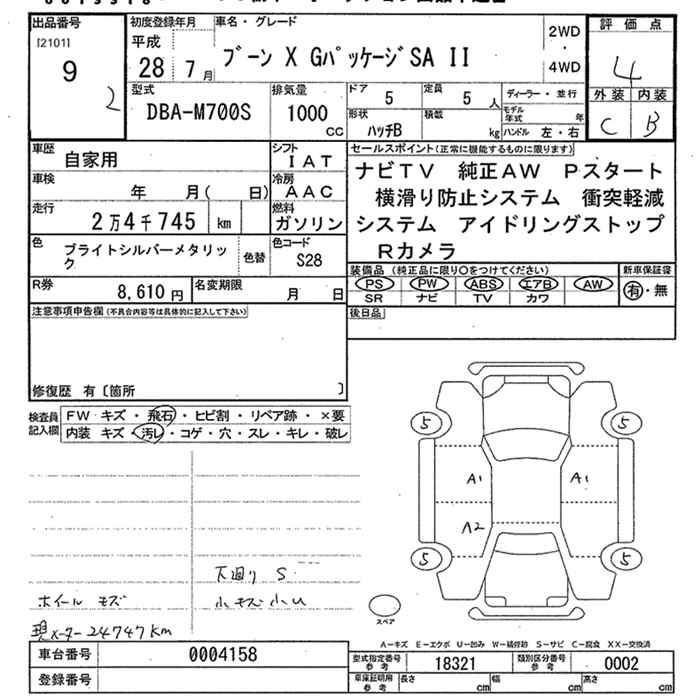 出品番号
[2101]
9
2
初度登録年月
平成
28年 7月
車名・グレード
ブーン X Gパッケージ SA II
2WD
・
4WD
評価点
4
外装 内装
C B
型式
DBA-M700S
排気量
1000
CC
ドア
5
定員
5 人
形状
ハッチB
積載
kg
ディーラー・並行
モデル年式 年
ハンドル 左・右
車歴
自家用
シフト
IAT
車検
年 月( 日)
冷房
AAC
走行
2万4千745 km
燃料
ガソリン
色
ブライトシルバーメタリック
色替
色コード
S28
R券
8,610 円
名変期限
月 日
セールスポイント(正常に機能するものに限ります)
ナビTV 純正AW Pスタート
横滑り防止システム 衝突軽減
システム アイドリングストップ
Rカメラ
装備品 (純正品に限り○をつけてください)
PS PW ABS エアB AW
SR ナビ TV カワ
新車保証書
有・無
後日品
注意事項申告欄(不具合内容等は具体的に記入して下さい)
修復歴 有〔箇所 〕
検査員記入欄
FW キズ・飛石・ヒビ割・リペア跡・×要
内装 キズ・汚レ・コゲ・穴・スレ・キレ・破レ
5 5
A1 A1
A2
5 5
スペア
下廻り S
ホイール キズ
小キズ小U
現メーター24747km
A-キズ E-エクボ U-凹み W-補修跡 S-サビ C-腐食 XX-交換済
車台番号
0004158
登録番号
型式指定番号
参考
18321
類別区分番号
参考
0002
車庫証明用
参考
長さ cm
幅 cm
高さ cm